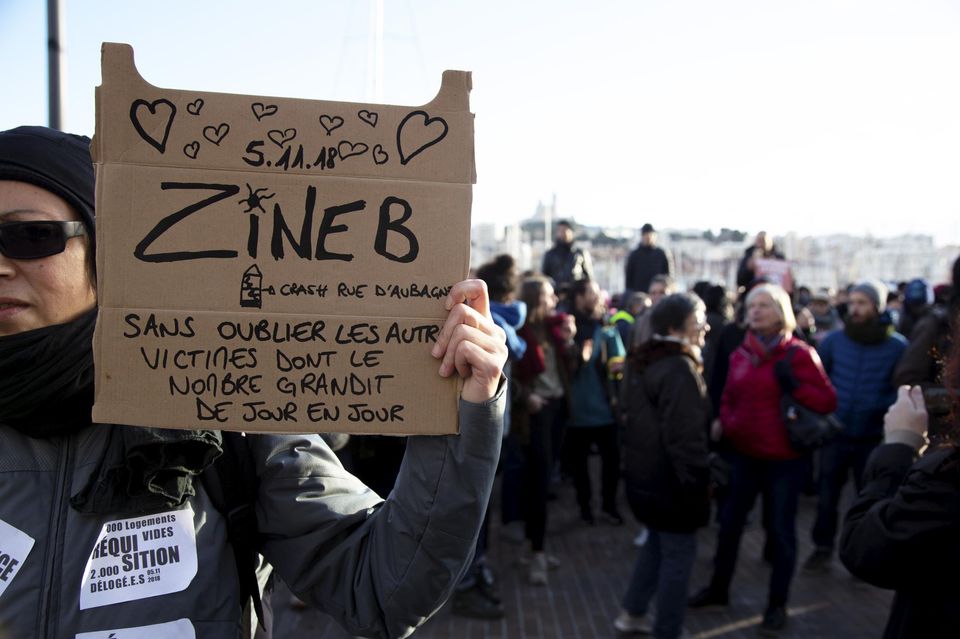 5.11.18
ZINEB
CRASH RUE D'AUBAGNE
SANS OUBLIER LES AUTR
VICTIMES DONT LE
NOMBRE GRANDIT
DE JOUR EN JOUR
000 Logements
RÉQUI VIDES
SITION
2.000
05.11
2018
DÉLOGÉ.E.S